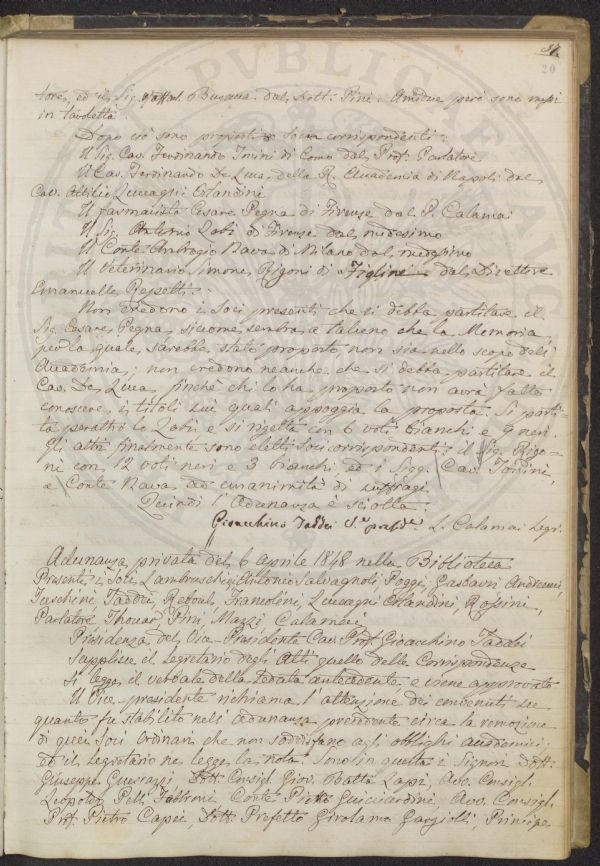 20
tore, ed il Sig. Raffael. Busacca dal Dott. Pini. Amidue però sono messi
in tavoletta
Dopo ciò sono proposti a Socii corrispondenti:
Il Sig. Cav. Ferdinando Tonini di Como dal Prof. Parlatore
Il Cav. Ferdinando De Luca della R. Accademia di Napoli dal
Cav. Attilio Zuccagni Orlandini
Il farmacista Cesare Pegna di Firenze dal P. Calamai
Il Sig. Antonio Zobi di Firenze dal medesimo
Il Conte Ambrogio Nava di Milano dal medesimo
Il Veterinario Simone Rigoni di Figline dal Direttore
Emanuelle Repetti.
Non credono i Socj presenti che si debba partitare il
Sig. Cesare Pegna, siccome sembra a taluno che la Memoria,
per la quale sarebbe stato proposto non sia nello scopo dell'
Accademia; non credono neanche che si debba partitare il
Cav. De Luca finchè chi lo ha proposto non avrà fatto
conoscere i titoli sui quali appoggia la proposta. Si parti-
ta peraltro lo Zobi e si rigetta con 6 voti bianchi e 9 neri.
Gli altri finalmente sono eletti Soci corrispondenti: il Sig. Rigo-
ni con 12 voti neri e 3 bianchi ed i Sigg. Cav. Tonini,
e Conte Nava ad unanimità di suffragi.
Quindi l'Adunanza è sciolta.
Gioacchino Taddei L. Calamai Segr.
Adunanza privata del 6 Aprile 1848 nella Biblioteca
Presenti i Soci Lambruschini, Antonio Salvagnoli, Poggi, Gasbarri, Andreucci,
Taddei, Reboul, Francolini, Zuccagni Orlandini, Rossini,
Parlatore, Thouar, Pini, Mazzi, Calamai
Presidenza del Vice-Presidente Cav. Prof. Gioacchino Taddei
Supplisce il Segretario degli Atti quello delle Corrispondenze
Si legge il verbale della seduta antecedente, e viene approvato
Il Vice-presidente richiama l'attenzione dei convenuti su
quanto fu stabilito nell'Adunanza precedente circa la remozione
di quei Soci Ordinari che non soddisfano agli obblighi accademici;
ed il Segretario ne legge la nota. Sono in questa i Signori Dott.
Giuseppe Dott. Consigl. Giov. Batta Lapi, Avv. Consigl.
Leopoldo Pelli Fabbroni, Conte Pietro Guicciardini, Avv. Consigl.
Prof. Pietro Capei, Dott. Prefetto Girolamo Gargiolli, Principe